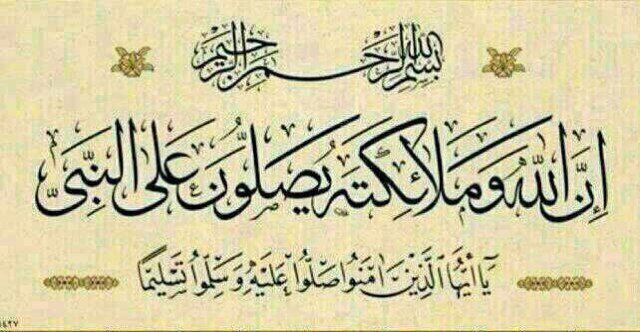 بسم الله الرحمن الرحيم
إن الله وملائكته يصلون على النبي
يا أيها الذين ءامنوا صلوا عليه وسلموا تسليما
١٤٢٧